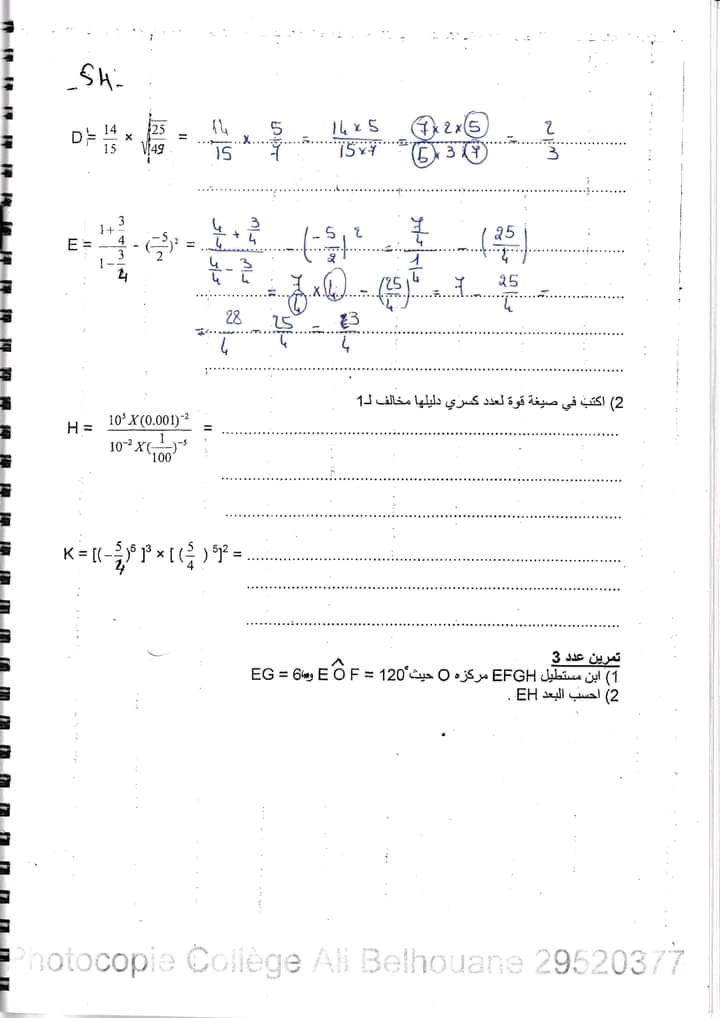 _SH_
D = 14/15 × √(25/49) = 14/15 × 5/7 = (14×5)/(15×7) = (7×2×5)/(5×3×7) = 2/3
E = (1+3/4)/(1-3/4) - (-5/2)² = (4/4 + 3/4)/(4/4 - 3/4) - (-5/2)² = (7/4)/(1/4) - (25/4)
= 7/4 × 4 - (25/4) = 7 - 25/4 =
= 28/4 - 25/4 = 3/4
2) اكتب في صيغة قوة لعدد كسري دليلها مخالف لـ1
H = (10⁵ X (0.001)⁻²)/(10⁻² X (1/100)⁻⁵) =
K = [(-5/4)⁶ ]³ × [ (5/4) ⁵]² =
تمرين عدد 3
1) ابن مستطيل EFGH مركزه O حيث EÔF = 120° و EG = 6
2) احسب البعد EH .
Photocopie Collège Ali Belhouane 29520377